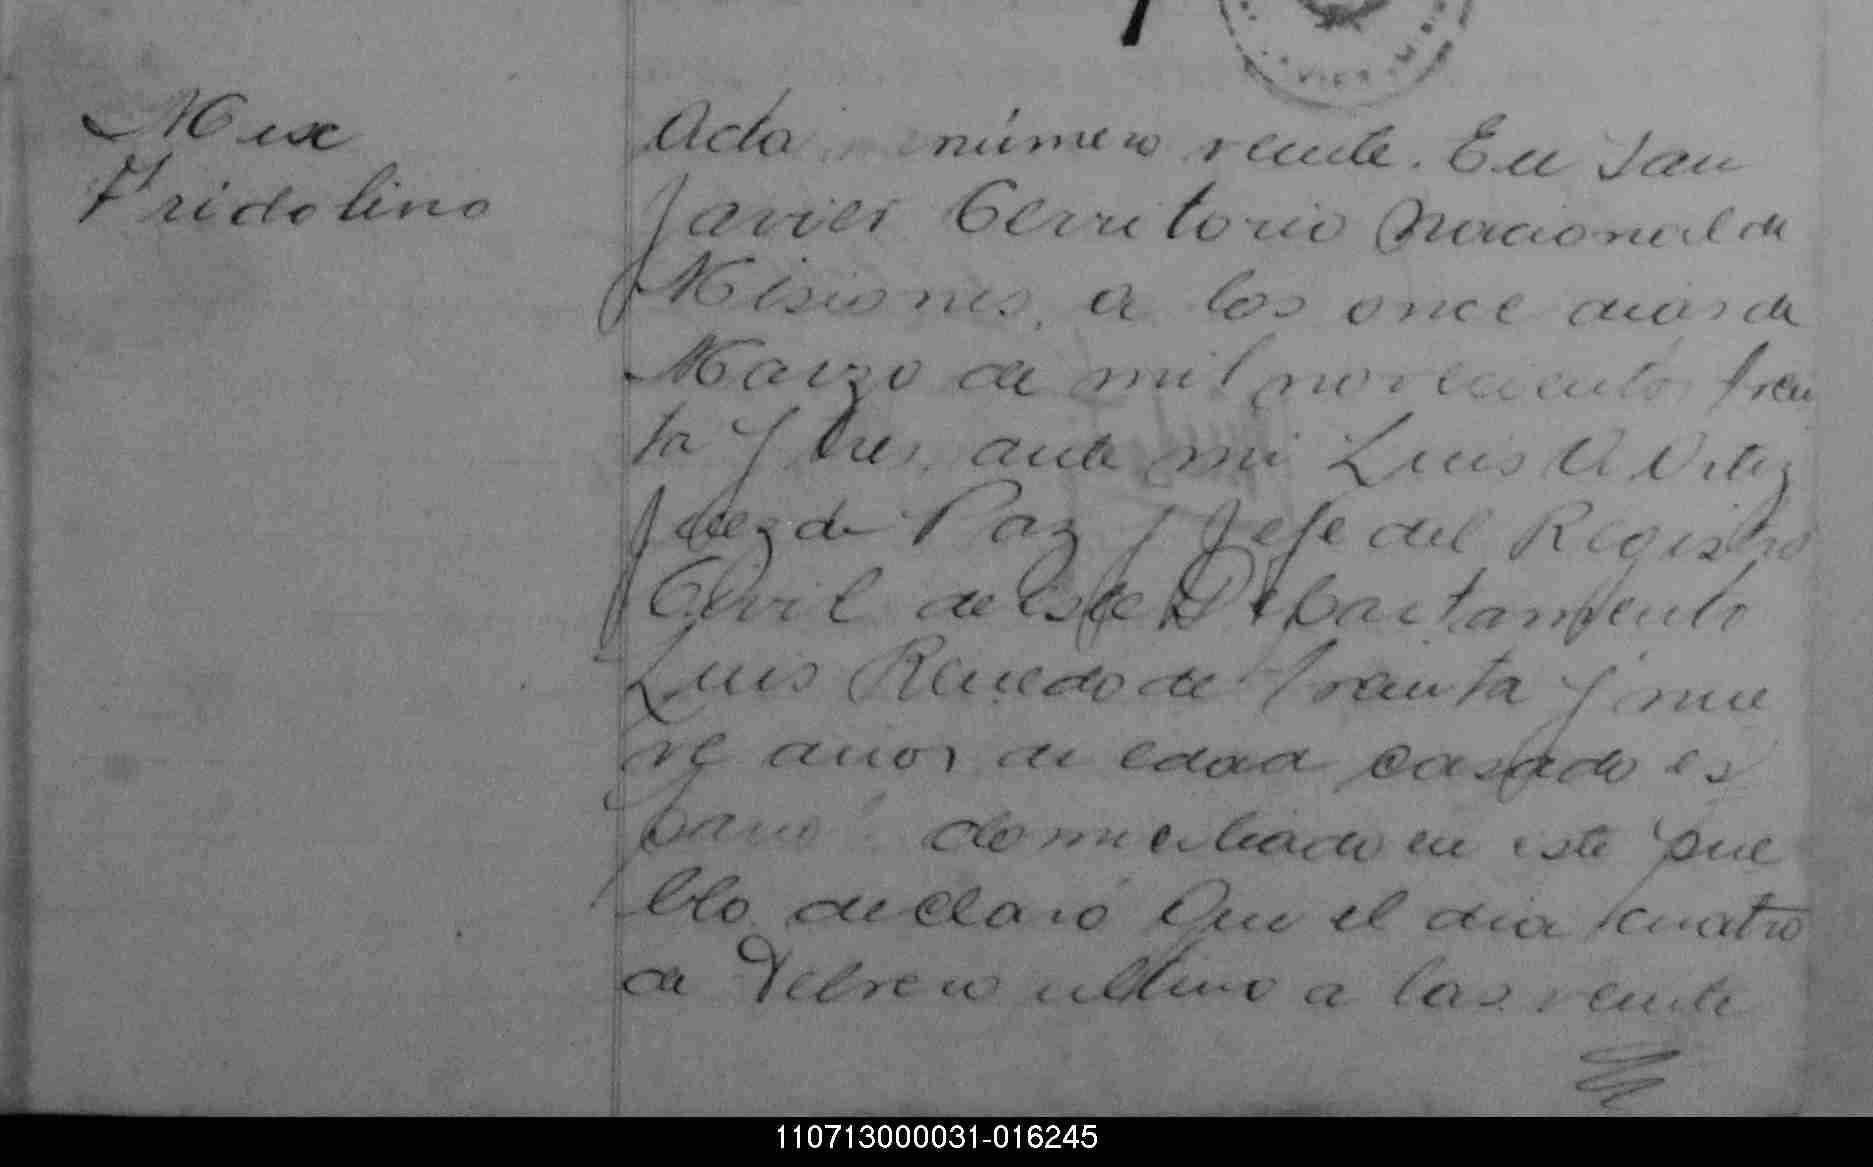 Mix
Fridolino
Acta número veinte. En San
Javier Territorio Nacional de
Misiones, a los once dias de
Marzo de mil novecientos trein
ta y tres, ante mi Luis
Juez de Paz y Jefe del Registro
Civil de este Departamento
Luis Renedo de treinta y nue
ve años de edad casado es
pañol domiciliado en este pue
blo declaró Que el dia cuatro
de Febrero ultimo a las veinte
110713000031-016245